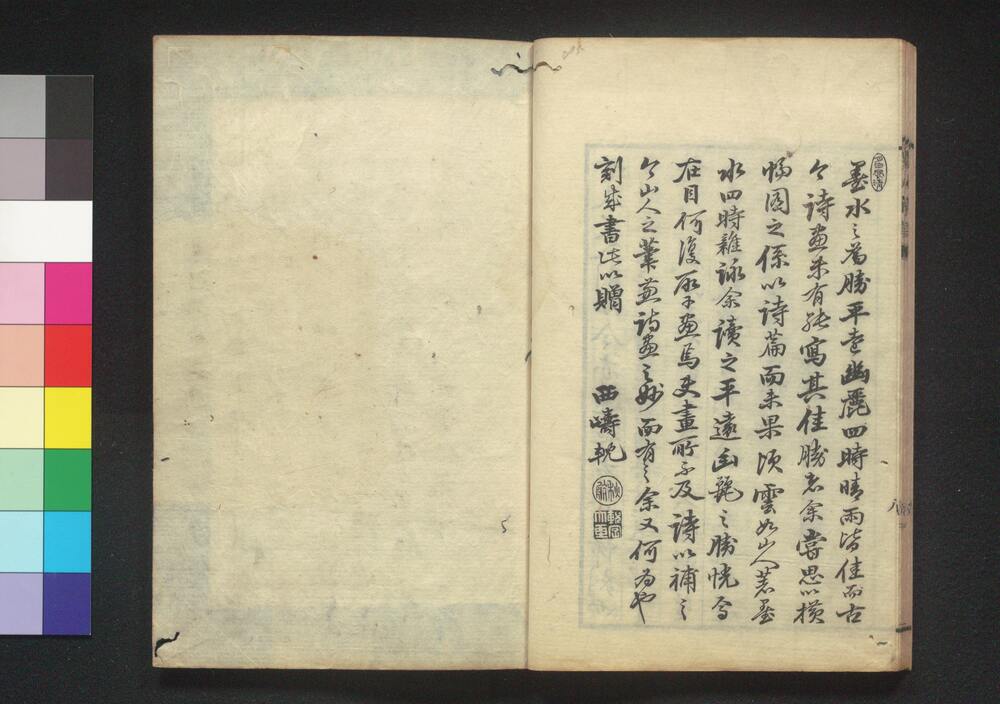 墨水之為勝平遠幽麗四時晴雨皆佳而古
今詩画未有能寫其佳勝者余嘗思以横
幅図之係以詩篇而未果頃雲如山人著墨
水四時雜詠余讀之平遠幽麗之勝恍焉
在目何復取于画焉夫畫所不及詩以補之
今山人之筆兼詩画之妙而有之余又何為也
刻成書此以贈　西疇